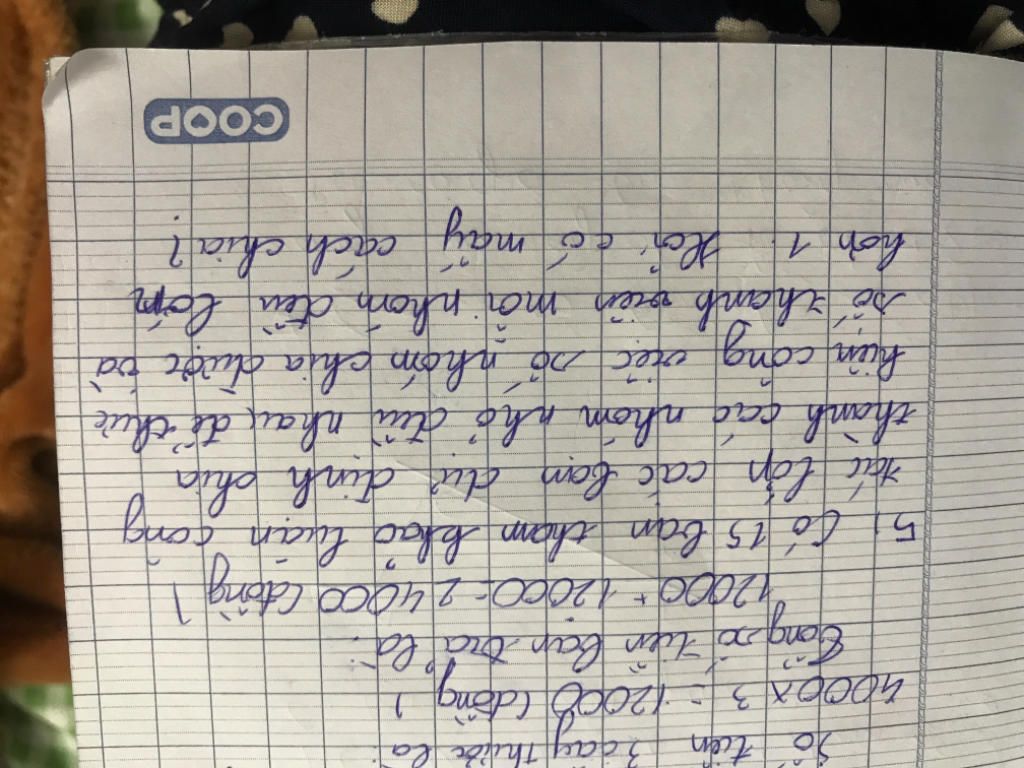 Số tiền 3 cây thước là:
4000 x 3 = 12000 (đồng)
Tổng số tiền bạn trả là:
12000 + 12000 = 24000 (đồng)
5) Có 15 bạn tham khảo luận công
tác lớp các bạn dự định chia
thành các nhóm nhỏ đều nhau, để thực
hiện công việc số nhóm chia được và
số thành viên mỗi nhóm đều lớn
hơn 1. Hỏi có mấy cách chia?
COOP